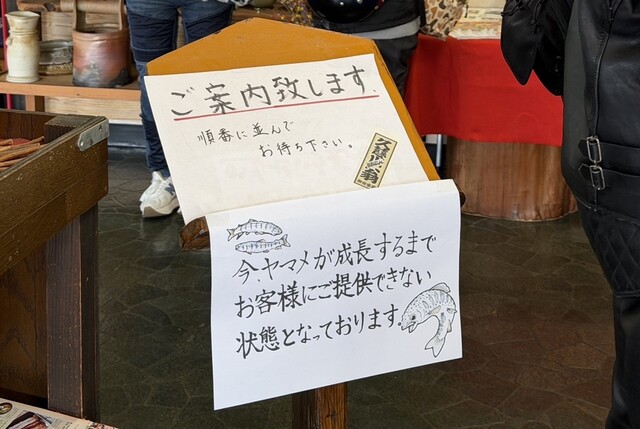 ご案内致します。
順番に並んで
お待ち下さい。
今、ヤマメが成長するまで
お客様にご提供できない
状態となっております